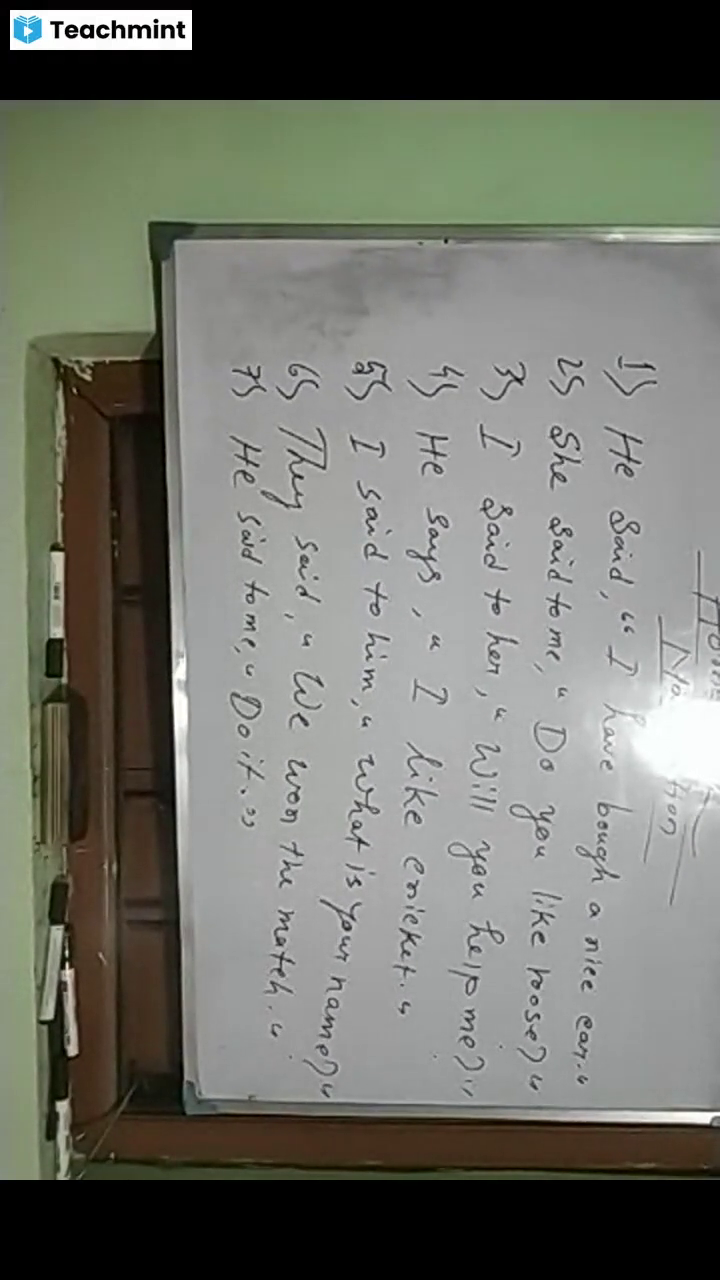 Teachmint
1) He Said, “ I have bough a nice car.“
2) She Said to me, “ Do you like roose?“
3) I Said to her, “ Will you help me?“
4) He says, “ I like cricket.“
5) I said to him, “ what is your name?“
6) They said, “ We won the match.“
7) He said to me, “ Do it.”